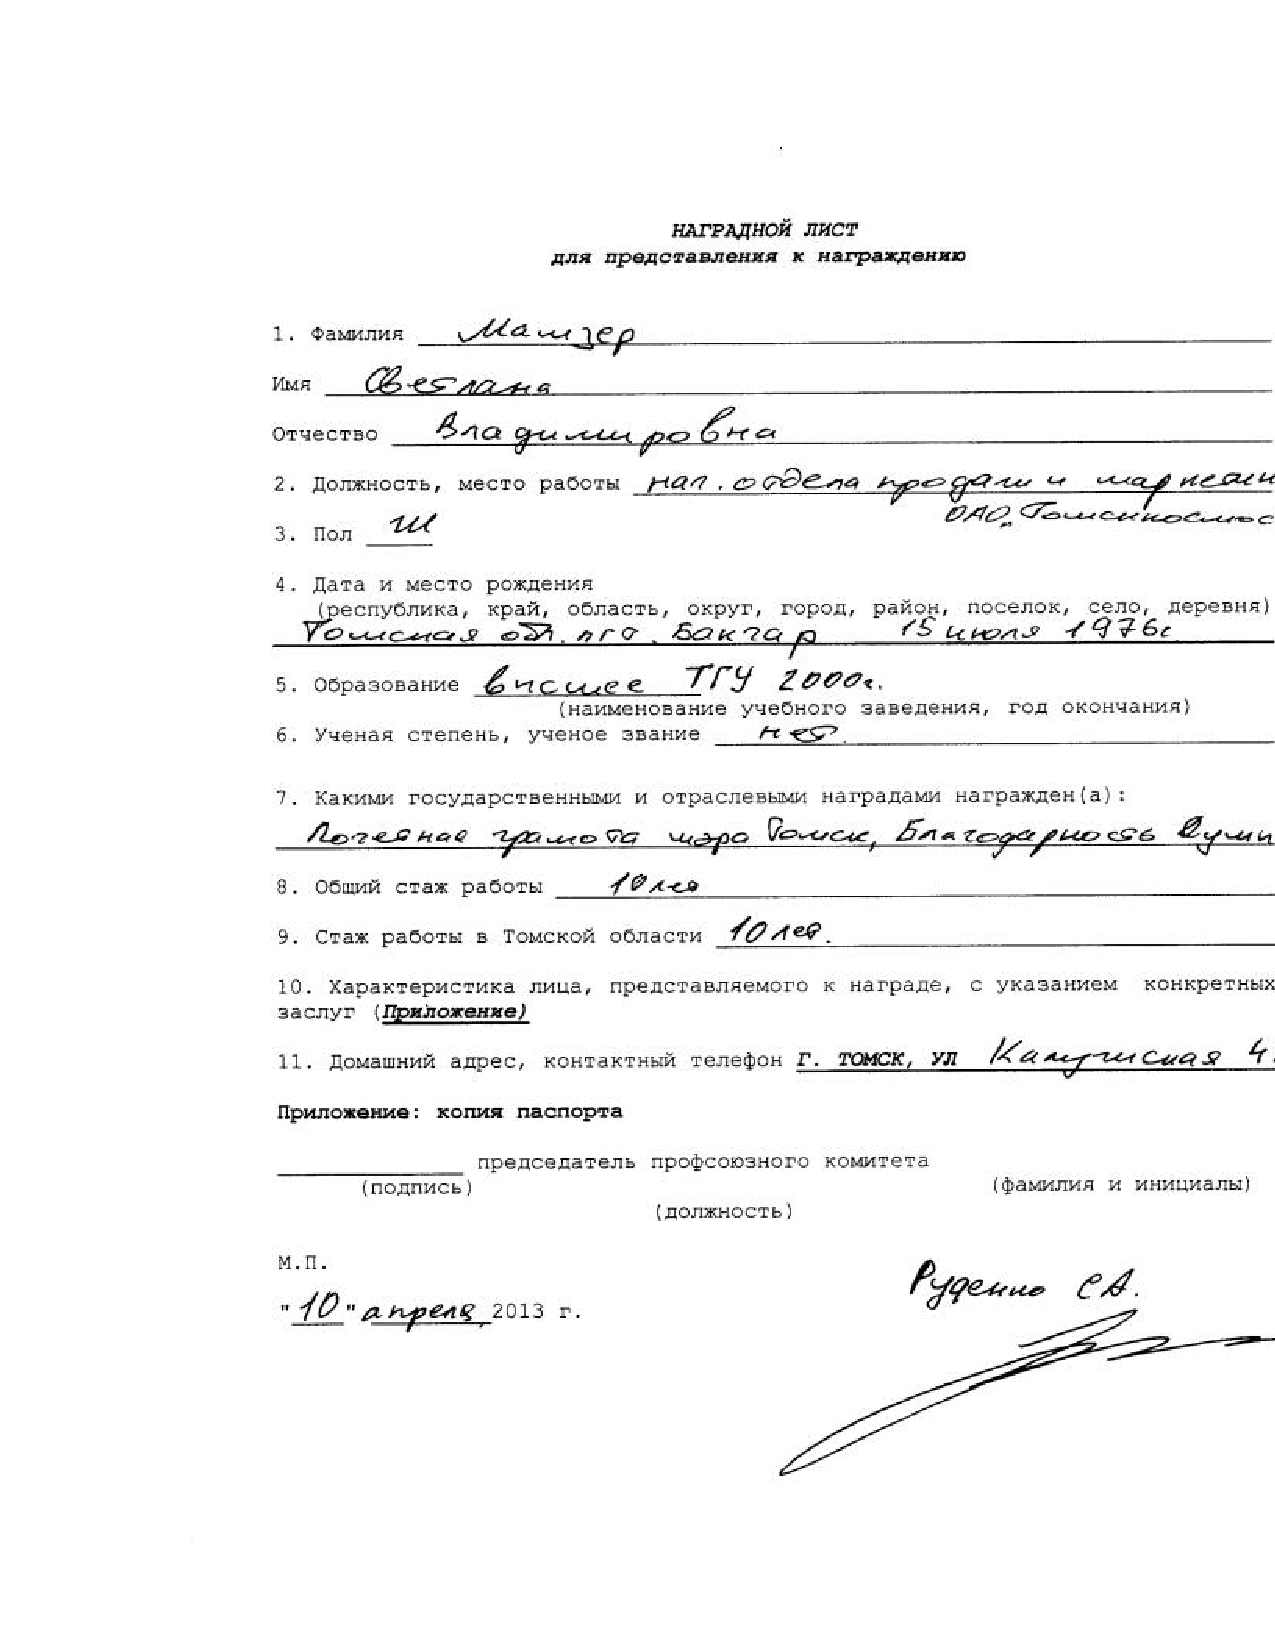 НАГРАДНОЙ ЛИСТ
для представления к награждению
1. Фамилия Мамзер
Имя Светлана
Отчество Владимировна
2. Должность, место работы нач. отдела продаж и
ОАО „
3. Пол ж
4. Дата и место рождения
(республика, край, область, округ, город, район, поселок, село, деревня)
Томская обл. пго. Бакчар 15 июля 1976г
5. Образование высшее ТГУ 2000г.
(наименование учебного заведения, год окончания)
6. Ученая степень, ученое звание нет.
7. Какими государственными и отраслевыми наградами награжден(а):
Почетная грамота мэра Томск, Благодарность
8. Общий стаж работы 10 лет
9. Стаж работы в Томской области 10 лет.
10. Характеристика лица, представляемого к награде, с указанием конкретных
заслуг (Приложение)
11. Домашний адрес, контактный телефон Г. ТОМСК, УЛ 4
Приложение: копия паспорта
председатель профсоюзного комитета
(подпись) (фамилия и инициалы)
(должность)
М.П.
Руденко С.А.
"10" апреля 2013 г.